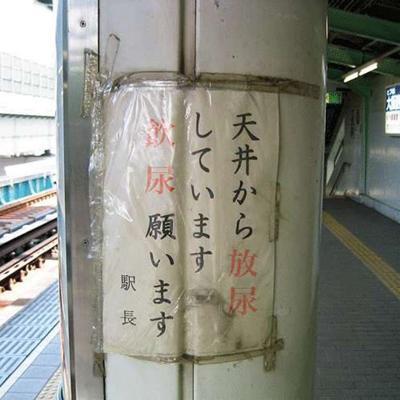 天井から放尿
しています
飲尿願います
駅長